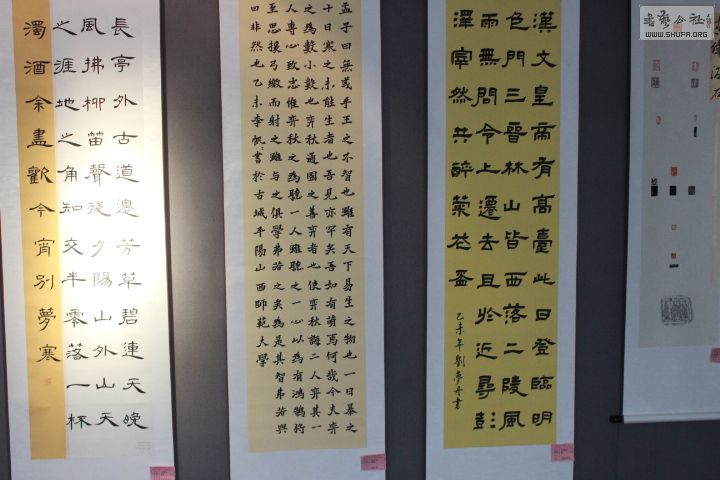 書藝公社
WWW.SHUFA.ORG
長亭外古道邊芳草碧連天晚
風拂柳笛聲殘夕陽山外山天
之涯地之角知交半零落一杯
濁酒余盡歡今宵別夢寒
孟子曰無或乎王之不智也雖有天下易生之物也一日暴之
十日寒之未能生者也吾見亦罕矣吾如有萌焉何哉今夫弈
之為數小數也弈秋通國之善弈者也使弈秋誨二人弈其一
人專心致志惟弈秋之為聽一人雖聽之一心以為有鴻鵠將
至思援弓繳而射之雖與之俱學弗若之矣為是其智弗若與
曰非然也乙未李帆書於古城平陽山西師範大學
漢文皇帝有高臺此日登臨明
色門三晉林山皆西落二陵風
雨無問今上遷去且於近尋彭
澤宰然共醉菊花盃
乙未年劉夢丹書